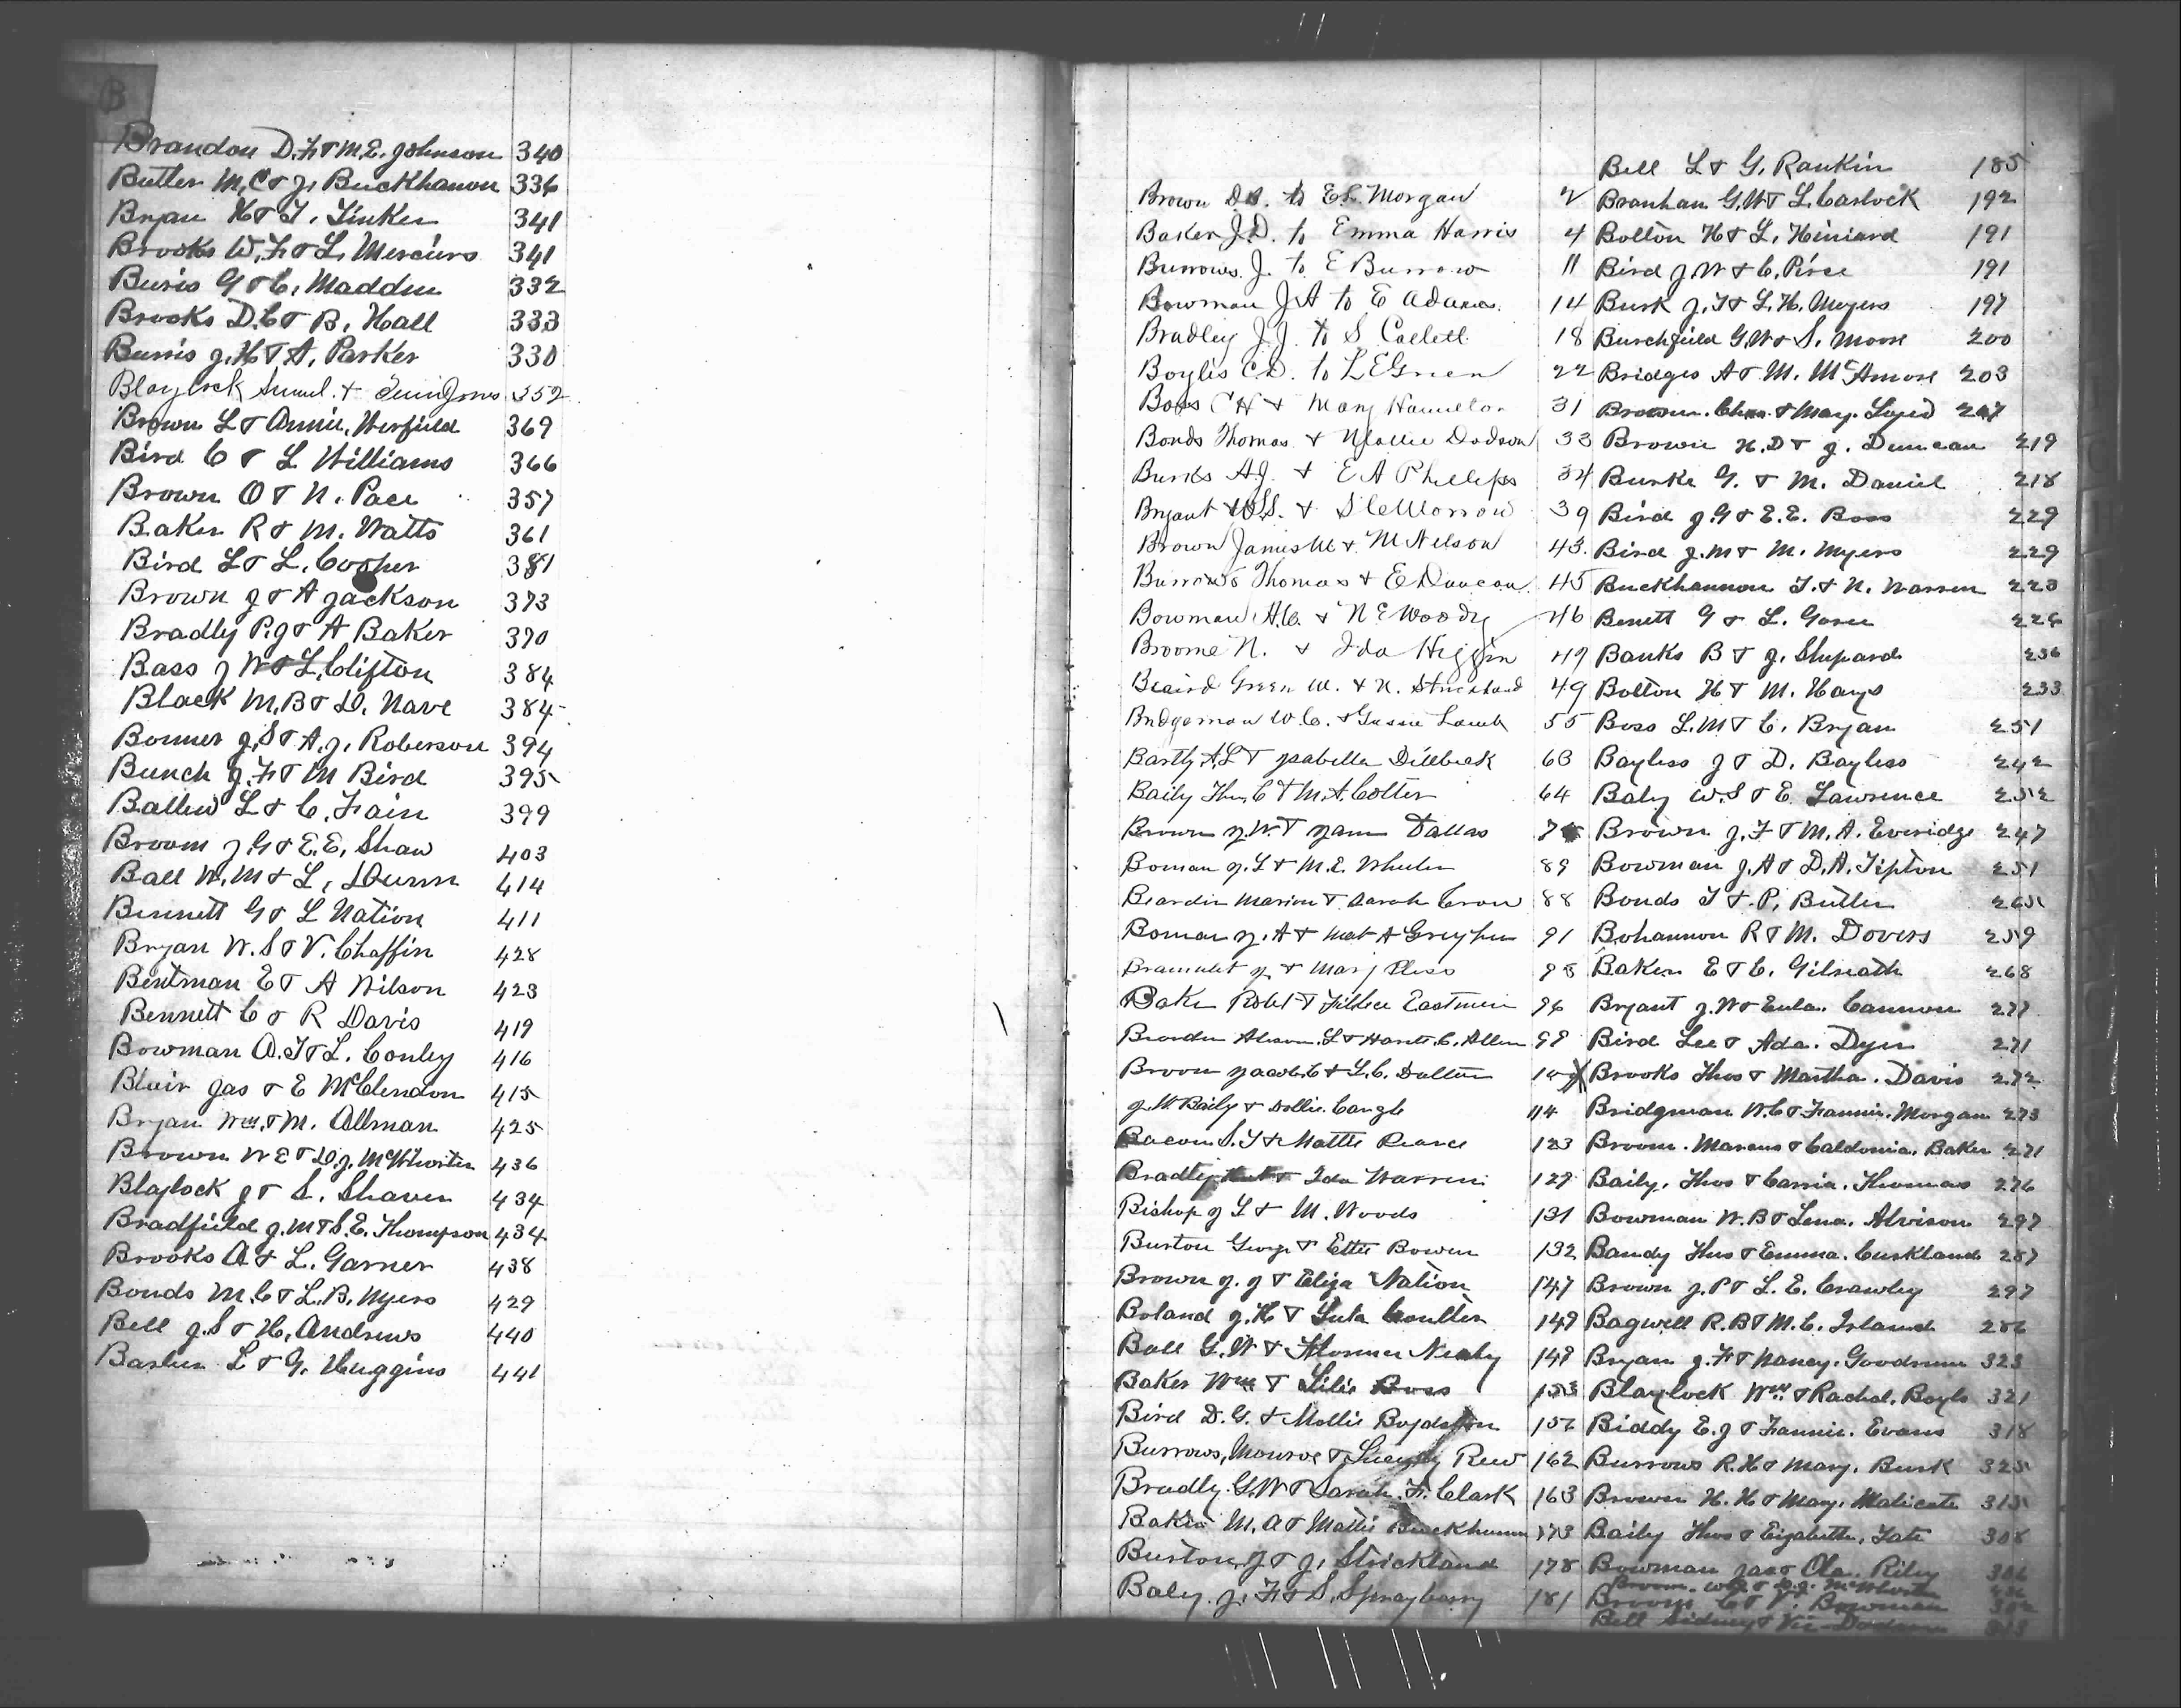 B
Brandon D.F. & M.E. Johnson 340
Butler M.C & J. Buckhanon 336
Bryan H & T. Tinker 341
Brooks W.F. & L. Merciers 341
Buris G & C. Madden 332
Brooks D.C & B. Hall 333
Burris J.H & A. Parker 330
Blaylock & Jones 352
Brown L & Annie. 369
Bird C & L Williams 366
Brown O & N. Pace 357
Baker R & M. Watts 361
Bird L & L. Cooper 381
Brown J & A Jackson 373
Bradly P.J & A Baker 370
Bass J W & L. Clifton 384
Black M.B & D. Nave 384
Bonner J.S & A.J. Roberson 394
Bunch J.F & M Bird 395
Ballew L & C. Fain 399
Broom J G & E.E. Shaw 403
Ball W.M & L. Dunn 414
Bennett G & L Nation 411
Bryan W.S & V. Chaffin 428
Bentman E & A Wilson 423
Bennett C & R Davis 419
Bowman A.T & L. Conley 416
Blair Jas & E McClendon 415
Bryan Wm. & M. Allman 425
Brown W E & D.J. McWhorter 436
Blaylock J & S. Shaver 434
Bradfield J.M & S.E. Thompson 434
Brooks A & L. Garner 438
Bonds M.C & L.B. Myers 429
Bell J.S & H. Andrews 440
Barker L & G. Huggins 441
Brown D.B. to E.L. Morgan 2
Baker J.D. to Emma Harris 4
Burrows. J. to E Burrow 11
Bowman J.A to E Adams. 14
Bradley J.J. to S Collett 18
Boylis C.D. to L E Green 22
Boss C H & Mary Hamilton 31
Bonds Thomas & Mollie Dodson 33
Burks A.J. & E A Phillips 34
Bryant W.S. & S C Morrow 39
Brown James M & M Nelson 43.
Burrows Thomas & E Duncan 45
Bowman H.C. & N E Woody 46
Broome N. & Ida Higgin 49
Beaird Green W. & N. Strickland 49
Bridgeman W.C. & Gussie Lamb 55
Bartly A.L & Isabella Dillbeck 63
Baily Thos C & M.A. Colter 64
Brown J.W. & Jane Dallas
Boman J.L & M.E. Wheeler 89
Beardin Marion & Sarah Crow 88
Boman J.A & A 91
& Mary 95
Baker Robt & Eastman 96
L & C. Allen 99
Broom Jacob C & L.C. Dalton
J.W. Baily & Dollie. Cangle 114
Bacon S.T & Mattie Pearce 123
Bradley & Ida Warren 129
Bishop J L & M. Woods 131
Burton George & Ettie Bowen 132
Brown J. J & Eliza Nation 147
Boland J.H & Lula Coulter 149
Ball G.W & Florence Nealy 149
Baker Wm & Lilie Boss 153
Bird D.G. & Mollie Boydston 156
Burrows, Monroe & Rew 162
Bradly. G.W & Sarah. F. Clark 163
Baker M.A & Mattie Buckhanon 173
Burton J & J. Strickland 178
Baly. J.F & S. Sprayberry 181
Bell L & G. Rankin 185
Branham G.W & L. Carlock 192
Bolton H & L. Hiniard 191
Bird J W & C. Pirce 191
Burk J.T & L.H. Meyers 197
Burchfield G.W & S. Moore 200
Bridges A & M. McAmore 203
Brown. Chas. & May. Loyed 207
Brown H.D & J. Duncan 219
Burke G. & M. Daniel 218
Bird J.G & E.E. Boss 229
Bird J.M & M. Myers 229
Buckhannon T. & N. Warren 223
Benett G & L. Goree 226
Banks B & J. Shepard 236
Bolton H & M. Hays 233
Boss L.M & C. Bryan 251
Bayless J & D. Bayless 242
Baly W.S & E. Lawrence 252
Brown J.F & M.A. Everidge 247
Bowman J.A & D.A. Tipton 251
Bonds T & P. Butler 265
Bohannon R & M. Dovers 259
Baker E & C. Gilreath 268
Bryant J.W & Eula. Cannon 277
Bird Lee & Ada. Dyer 271
Brooks Thos & Martha. Davis 272
Bridgman W.C & Fannie. Morgan 273
Broom. Marcus & Caldonia. Baker 271
Baily. Thos & Carria. Thomas 276
Bowman W.B & Lena. Alvison 297
Bandy Thos & Emma. Curkland 287
Brown J.P & L.E. Crawley 297
Bagwell R.B & M.C. Island 286
Bryan J.F & Nancy. Goodrum 323
Blaylock Wm & Rachel. Bayls 321
Biddy E.J & Fannie. Evans 318
Burrows R.H & Mary. Burk 325
Brown H.H & May. Malicote 315
Baily Thos & Elizabeth. Tate 308
Bowman Jas & Ola. Riley 306
Broom. & D.J. McWhorter
Broom C & V. Bowman 302
Bell Sidney & Vic Dodson 313